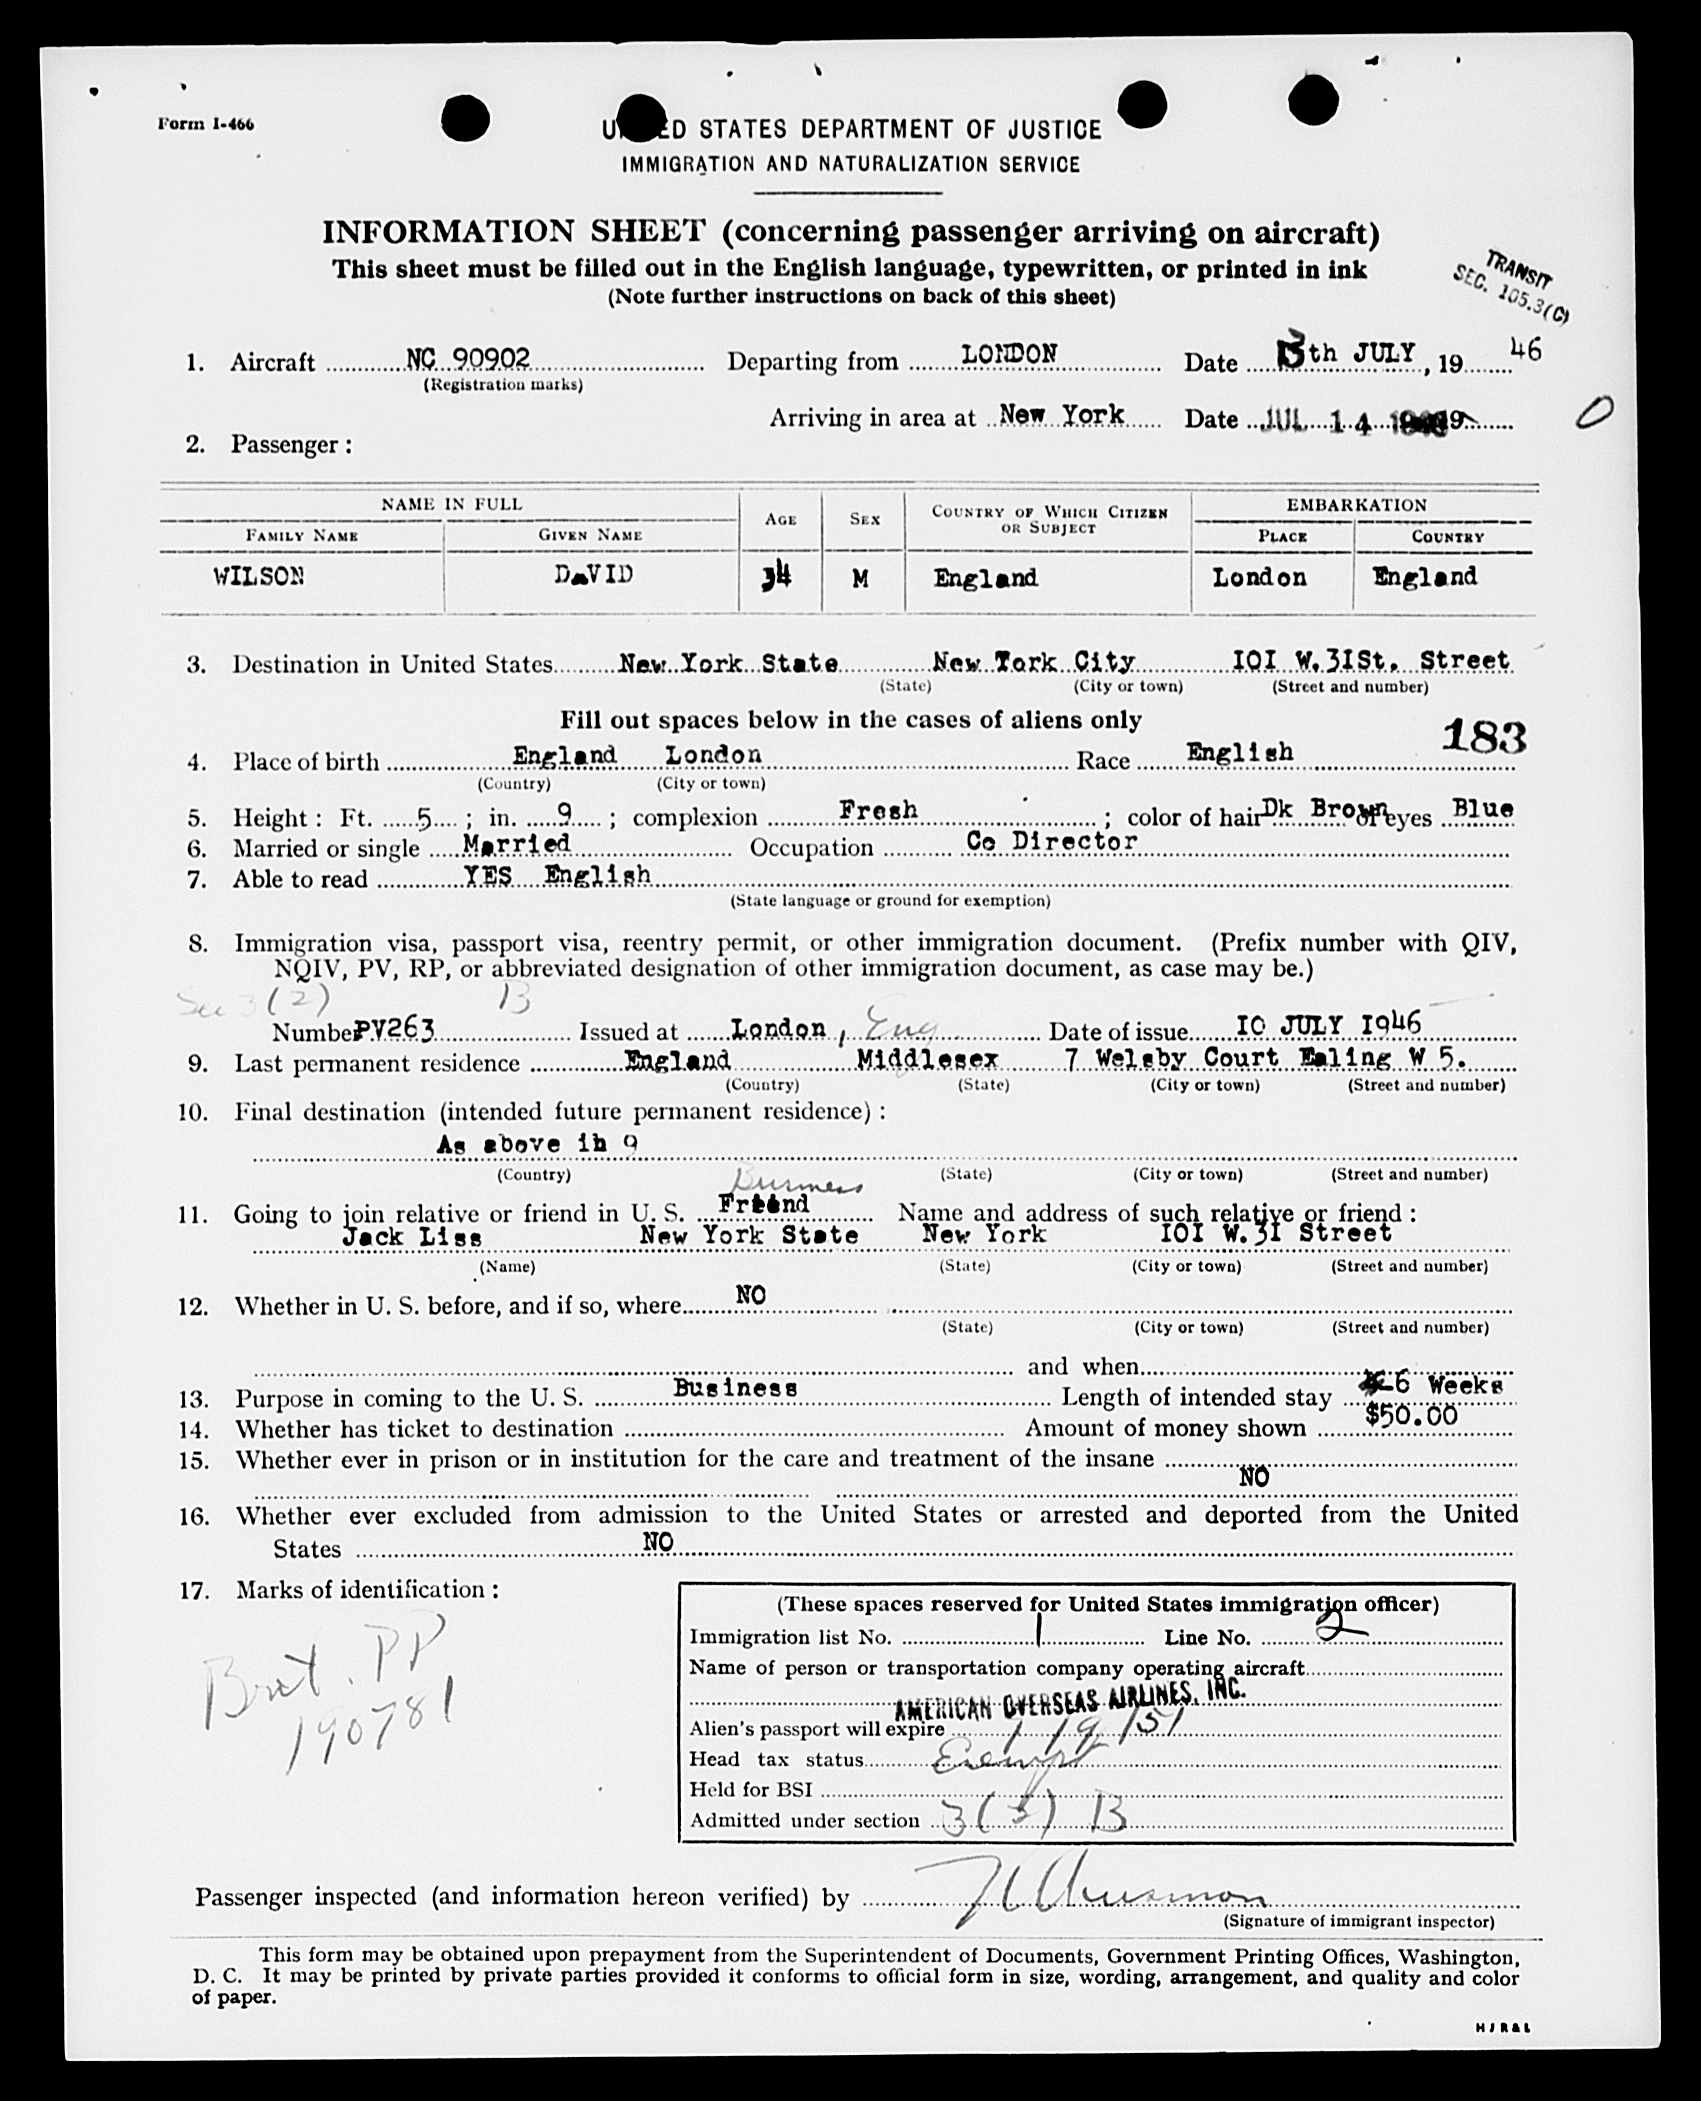 Form I-466
UNITED STATES DEPARTMENT OF JUSTICE
IMMIGRATION AND NATURALIZATION SERVICE
INFORMATION SHEET (concerning passenger arriving on aircraft)
This sheet must be filled out in the English language, typewritten, or printed in ink
(Note further instructions on back of this sheet)
TRANSIT
SEC. 105.3(C)
1. Aircraft NC 90902 Departing from LONDON Date 13th JULY, 19 46
(Registration marks)
Arriving in area at New York Date JUL 14 1946 19
2. Passenger:
NAME IN FULL AGE SEX COUNTRY OF WHICH CITIZEN OR SUBJECT EMBARKATION
FAMILY NAME GIVEN NAME PLACE COUNTRY
WILSON DAVID 34 M England London England
3. Destination in United States New York State New York City IOI W. 3ISt. Street
(State) (City or town) (Street and number)
Fill out spaces below in the cases of aliens only
183
4. Place of birth England London Race English
(Country) (City or town)
5. Height: Ft. 5; in. 9; complexion Fresh; color of hair Dk Brown eyes Blue
6. Married or single Married Occupation Co Director
7. Able to read YES English
(State language or ground for exemption)
8. Immigration visa, passport visa, reentry permit, or other immigration document. (Prefix number with QIV,
NQIV, PV, RP, or abbreviated designation of other immigration document, as case may be.)
Sec 3(2) B
Number PV263 Issued at London, Eng Date of issue IO JULY I946
9. Last permanent residence England Middlesex 7 Welsby Court Ealing W 5.
(Country) (State) (City or town) (Street and number)
10. Final destination (intended future permanent residence):
As above ih 9
(Country) (State) (City or town) (Street and number)
Business
11. Going to join relative or friend in U. S. Friend Name and address of such relative or friend:
Jack Liss New York State New York IOI W. 3I Street
(Name) (State) (City or town) (Street and number)
12. Whether in U. S. before, and if so, where NO
(State) (City or town) (Street and number)
and when
13. Purpose in coming to the U. S. Business Length of intended stay 6 Weeks
14. Whether has ticket to destination Amount of money shown $50.00
15. Whether ever in prison or in institution for the care and treatment of the insane
NO
16. Whether ever excluded from admission to the United States or arrested and deported from the United
States NO
17. Marks of identification:
Brit. PP
190781
(These spaces reserved for United States immigration officer)
Immigration list No. 1 Line No. 2
Name of person or transportation company operating aircraft
AMERICAN OVERSEAS AIRLINES, INC.
Alien's passport will expire 1/9/51
Head tax status Exempt
Held for BSI
Admitted under section 3(3) B
Passenger inspected (and information hereon verified) by
(Signature of immigrant inspector)
This form may be obtained upon prepayment from the Superintendent of Documents, Government Printing Offices, Washington,
D. C. It may be printed by private parties provided it conforms to official form in size, wording, arrangement, and quality and color
of paper.
H J R & L